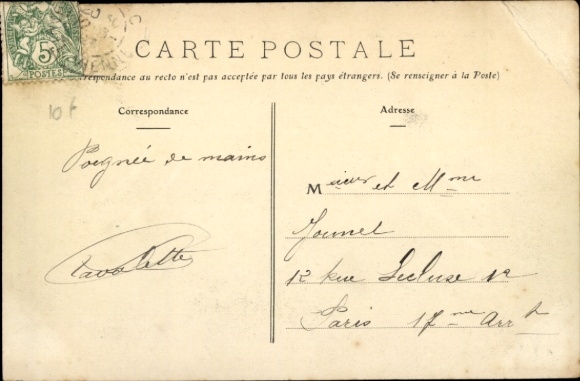 5c
POSTES
CARTE POSTALE
respondance au recto n'est pas acceptée par tous les pays étrangers. (Se renseigner à la Poste)
10 f
Correspondance
Poignée de mains
Adresse
Mrieur et Mme
12 rue Lécluse 12
Paris 17me Arrt